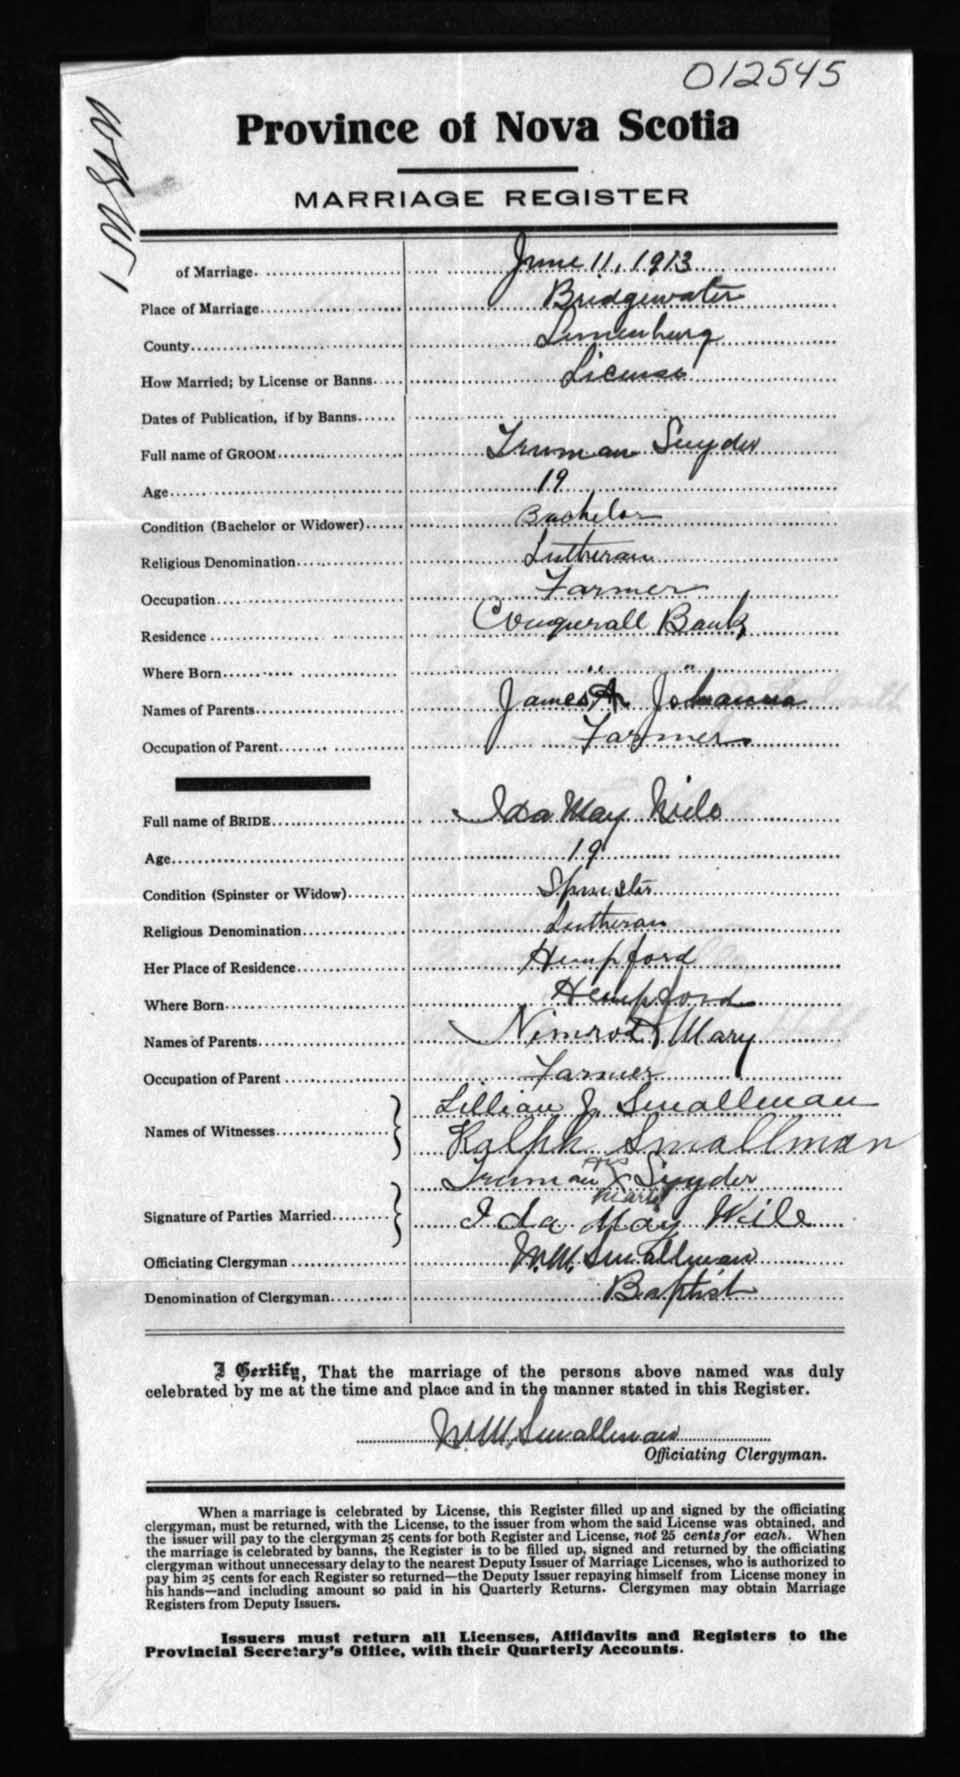 012545
Province of Nova Scotia
MARRIAGE REGISTER
of Marriage. June 11, 1913
Place of Marriage Bridgewater
County Lunenburg
How Married; by License or Banns License
Dates of Publication, if by Banns
Full name of GROOM Truman Snyder
Age 19
Condition (Bachelor or Widower) Bachelor
Religious Denomination Lutheran
Occupation Farmer
Residence Conquerall Bank
Where Born " "
Names of Parents James A. Johanna
Occupation of Parent Farmer
Full name of BRIDE Ida May Wile
Age 19
Condition (Spinster or Widow) Spinster
Religious Denomination Lutheran
Her Place of Residence Hempford
Where Born Hempford
Names of Parents Nimrod & Mary
Occupation of Parent Farmer
Names of Witnesses Lillian J. Smallman
Ralph Smallman
Signature of Parties Married Truman his X mark Snyder
Ida May Wile
Officiating Clergyman W.M. Smallman
Denomination of Clergyman Baptist
I Certify, That the marriage of the persons above named was duly
celebrated by me at the time and place and in the manner stated in this Register.
W.M. Smallman
Officiating Clergyman.
When a marriage is celebrated by License, this Register filled up and signed by the officiating
clergyman, must be returned, with the License, to the issuer from whom the said License was obtained, and
the issuer will pay to the clergyman 25 cents for both Register and License, not 25 cents for each. When
the marriage is celebrated by banns, the Register is to be filled up, signed and returned by the officiating
clergyman without unnecessary delay to the nearest Deputy Issuer of Marriage Licenses, who is authorized to
pay him 25 cents for each Register so returned—the Deputy Issuer repaying himself from License money in
his hands—and including amount so paid in his Quarterly Returns. Clergymen may obtain Marriage
Registers from Deputy Issuers.
Issuers must return all Licenses, Affidavits and Registers to the
Provincial Secretary's Office, with their Quarterly Accounts.